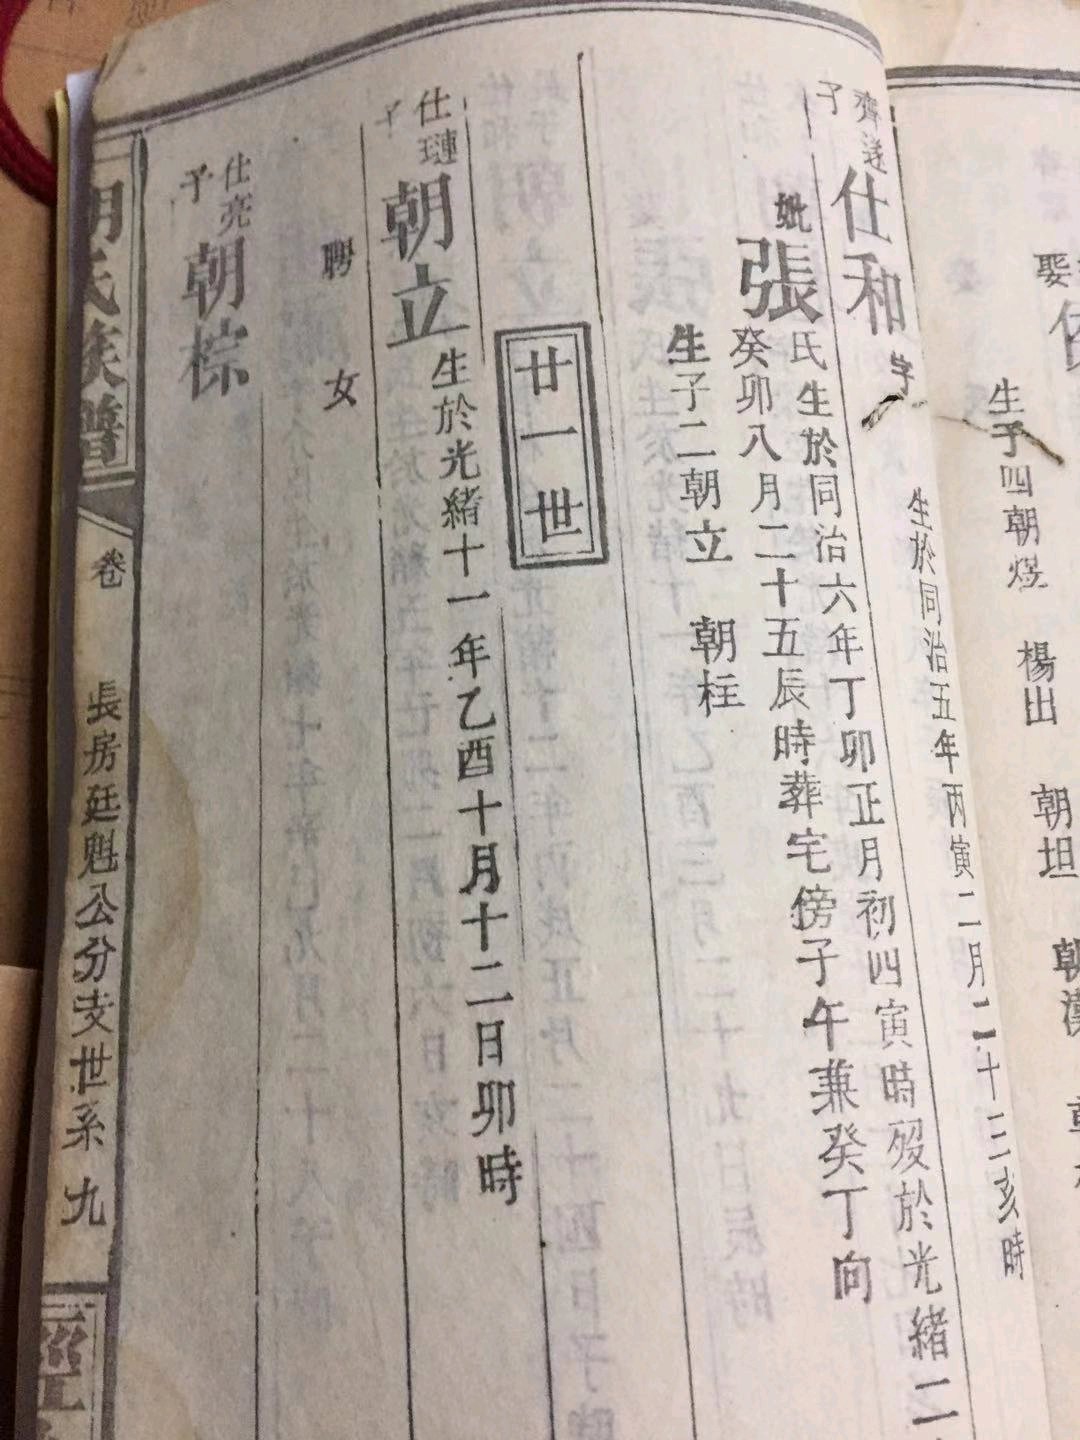 娶
生子四朝煜　楊出　朝坦
齊送子
仕和字
生於同治五年丙寅二月二十三亥時
妣張氏生於同治六年丁卯正月初四寅時歿於光緒二
癸卯八月二十五辰時葬宅傍子午兼癸丁向
生子二朝立　朝柱
廿一世
仕璉子
朝立生於光緒十一年乙酉十月十二日卯時
聘　女
仕亮子
朝棕
胡氏族譜
卷　長房廷魁公分支世系　九
經